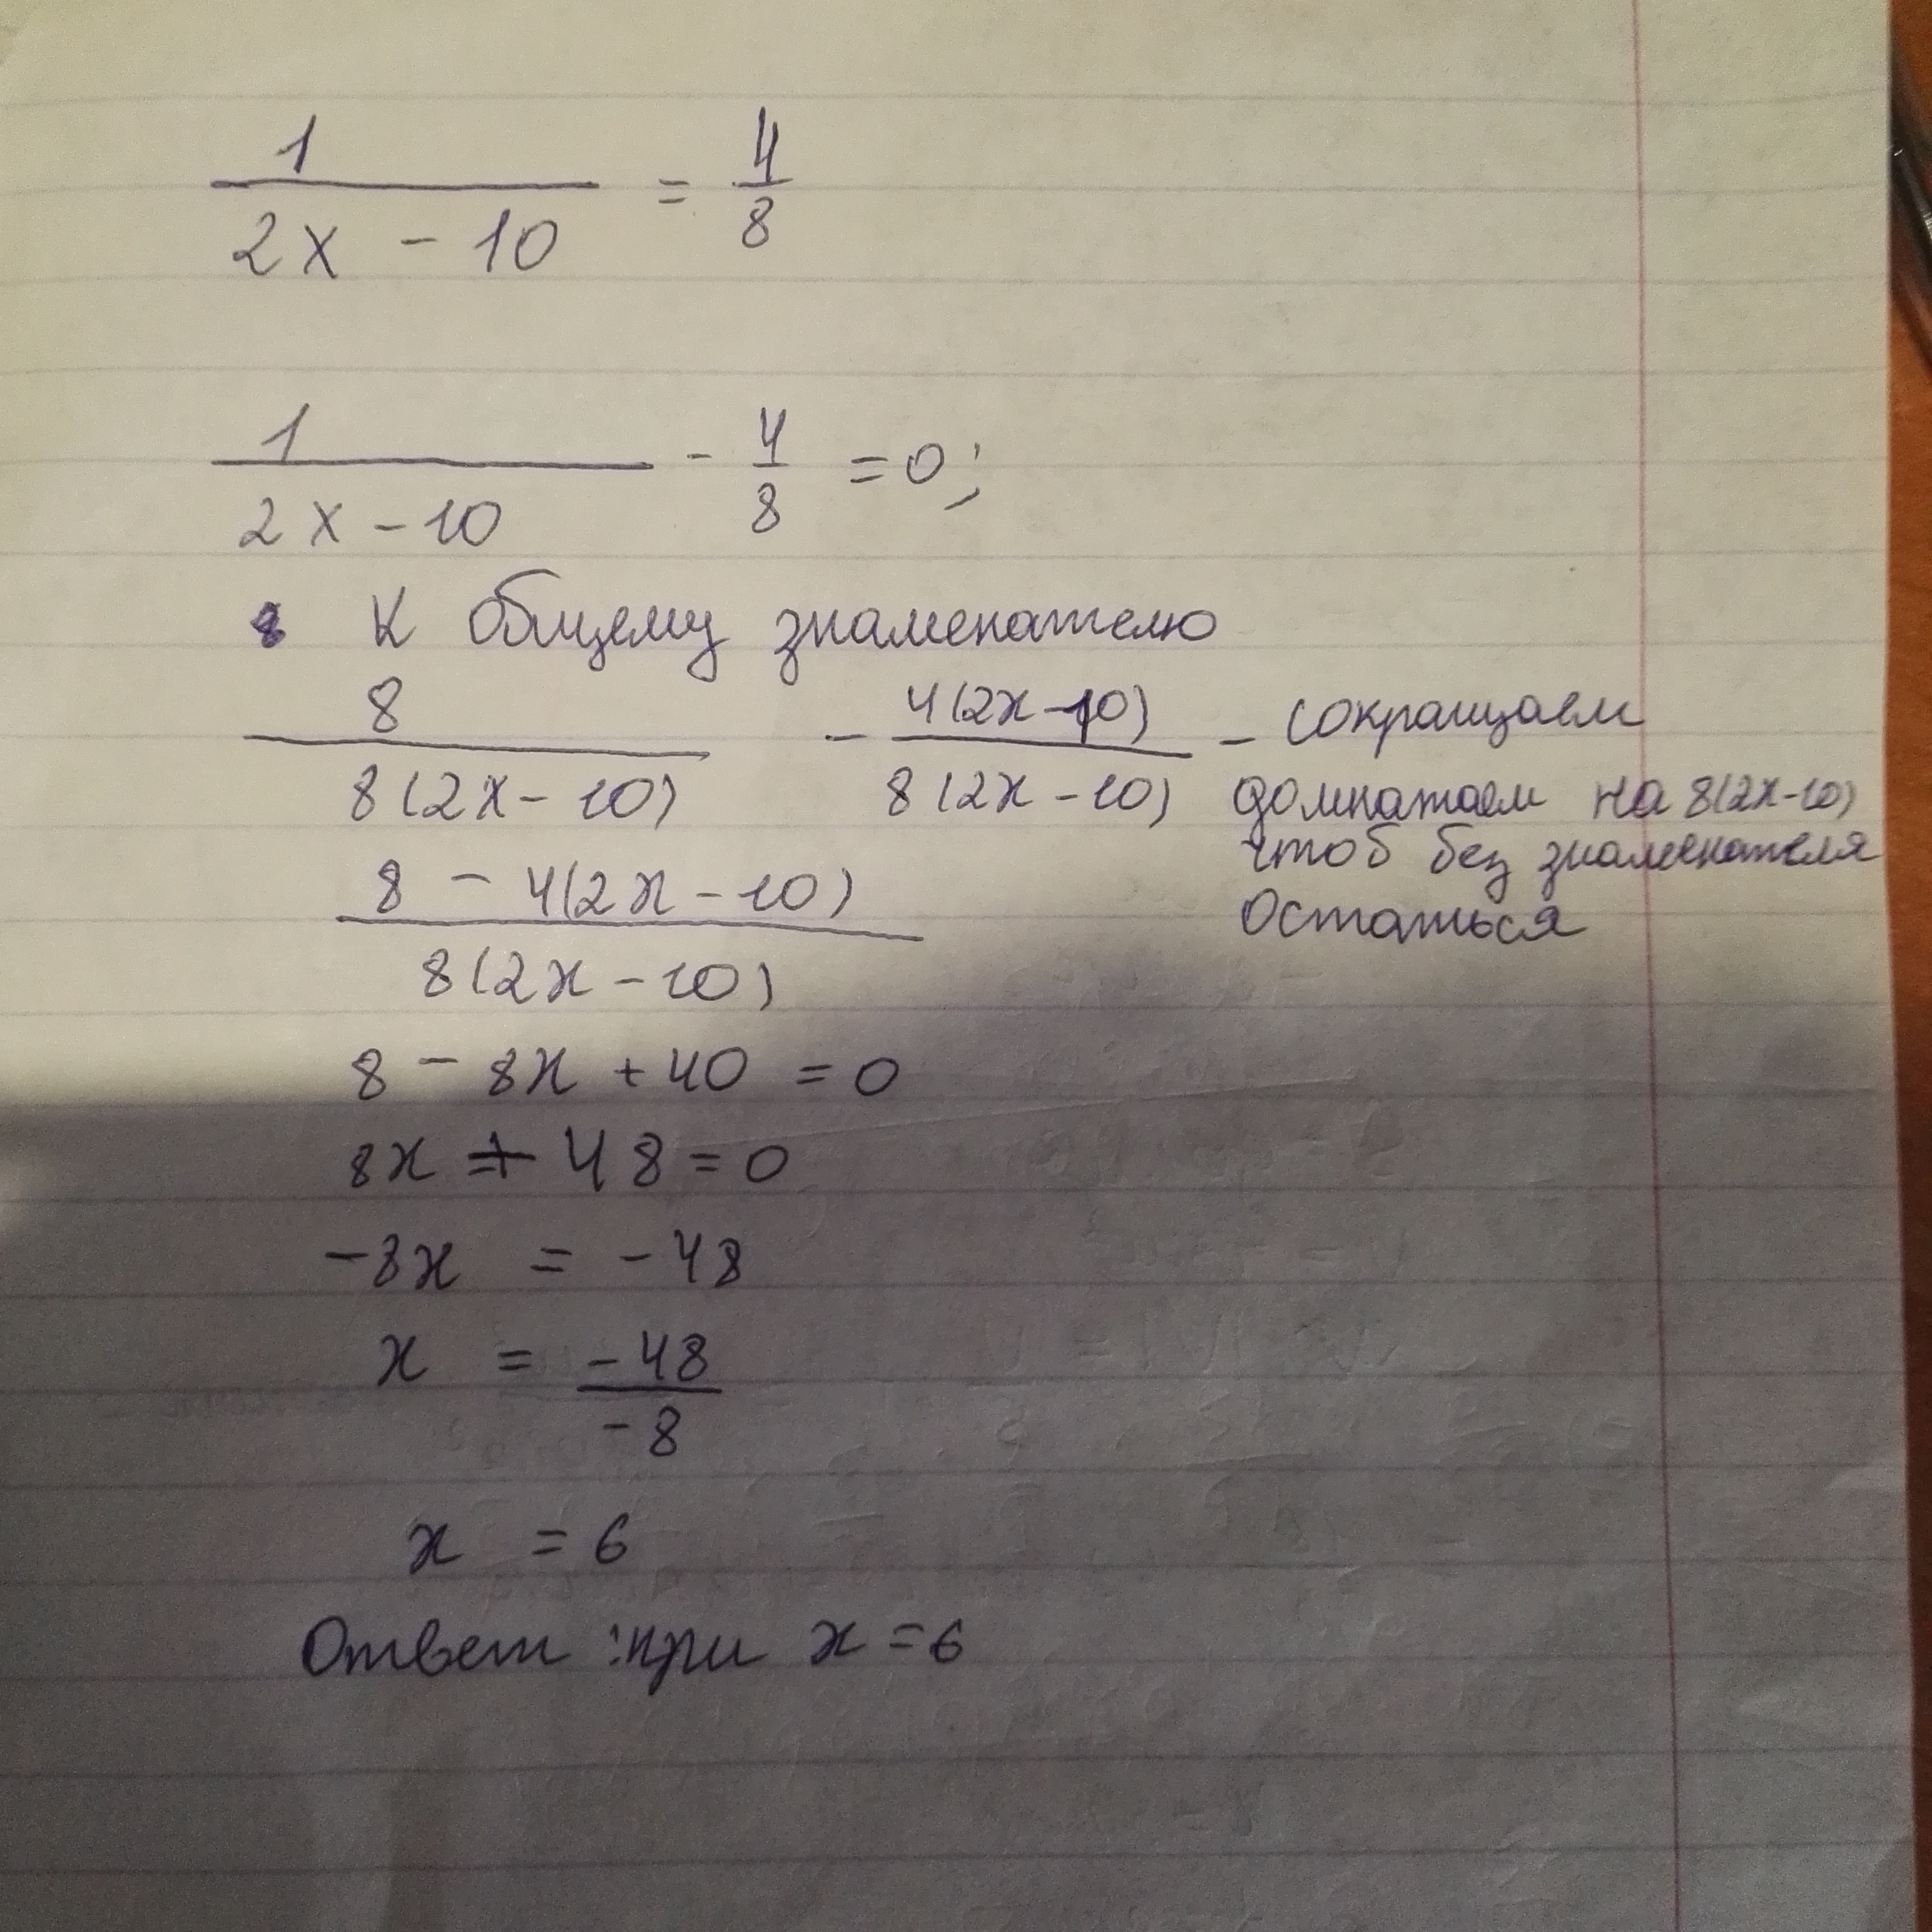 1
2x - 10 = 4/8
1/(2x-10) - 4/8 = 0;
К общему знаменателю
8/(8(2x-10)) - 4(2x-10)/(8(2x-10)) - сокращаем
домнатаем на 8(2x-10)
чтоб без знаменателя
остаться
8 - 4(2x-10)
8(2x-10)
8 - 8x + 40 = 0
8x + 48 = 0
-8x = -48
x = -48/-8
x = 6
Ответ: при x = 6